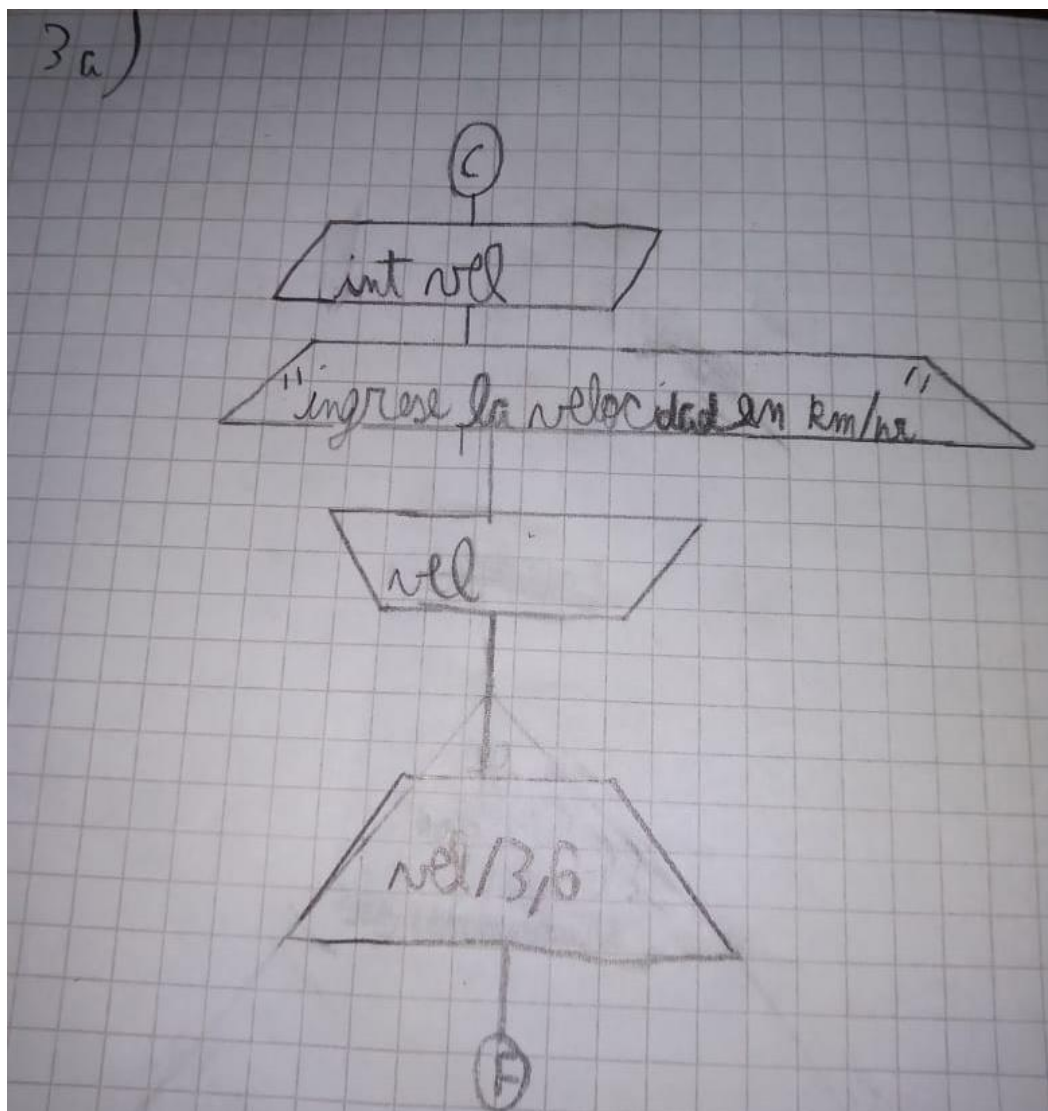 3a)
C
int vel
"ingrese la velocidad en km/hr"
vel
vel/3,6
F